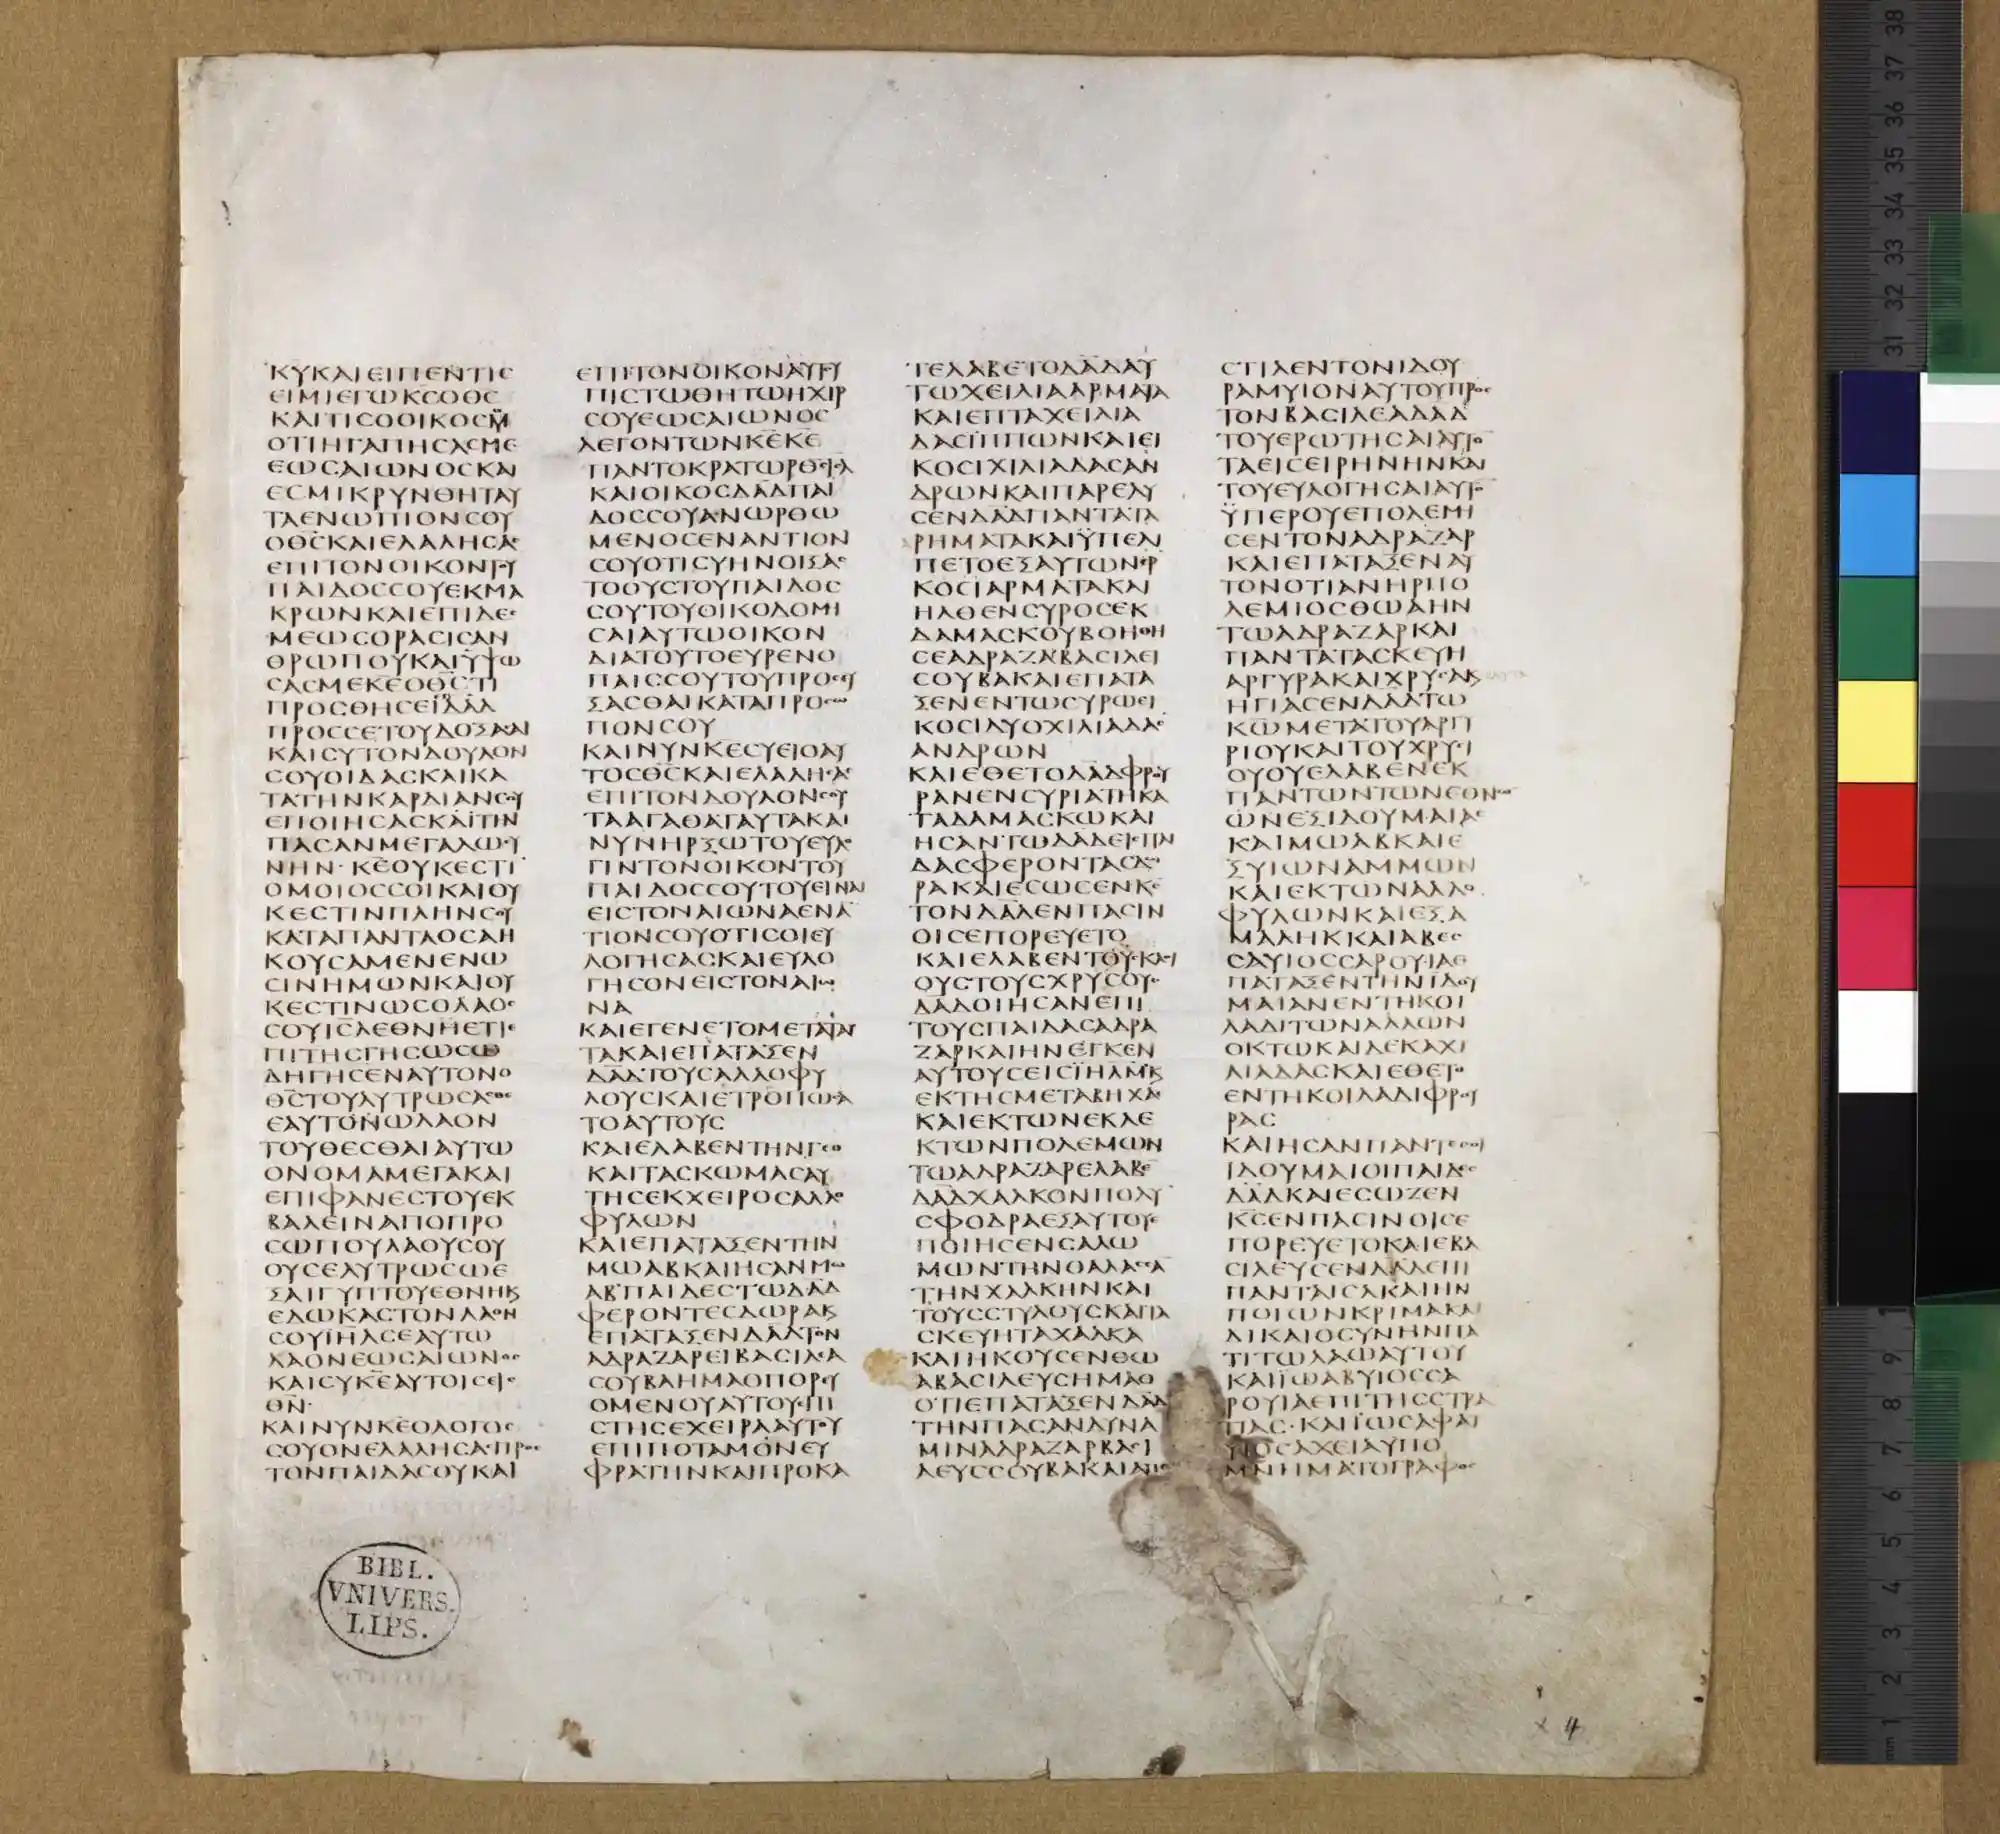 ΚΥΚΑΙΕΙΠΕΝΤΙϹ
ΕΙΜΙΕΓΩΚϹΟΘϹ
ΚΑΙΤΙϹΟΟΙΚΟϹΜΟΥ
ΟΤΙΗΓΑΠΗϹΑϹΜΕ
ΕΩϹΑΙΩΝΟϹΚΑΙ
ΕϹΜΙΚΡΥΝΘΗΤΑΥ
ΤΑΕΝΩΠΙΟΝϹΟΥ
ΟΘϹΚΑΙΕΛΑΛΗϹΑϹ
ΕΠΙΤΟΝΟΙΚΟΝΤΟΥ
ΠΑΙΔΟϹϹΟΥΕΚΜΑ
ΚΡΩΝΚΑΙΕΠΙΔΕϹ
ΜΕΩϹΟΡΑϹΙϹΑΝ
ΘΡΩΠΟΥΚΑΙΥΨΩ
ϹΑϹΜΕΚΕΟΘϹΤΙ
ΠΡΟϹΘΗϹΕΙΔΑΔ
ΠΡΟϹϹΕΤΟΥΔΟΞΑϹΑΙ
ΚΑΙϹΥΤΟΝΔΟΥΛΟΝ
ϹΟΥΟΙΔΑϹΚΑΙΚΑ
ΤΑΤΗΝΚΑΡΔΙΑΝϹΟΥ
ΕΠΟΙΗϹΑϹΚΑΙΤΗΝ
ΠΑϹΑΝΜΕΓΑΛΩϹΥ
ΝΗΝ·ΚΕΟΥΚΕϹΤΙ
ΟΜΟΙΟϹϹΟΙΚΑΙΟΥ
ΚΕϹΤΙΝΠΛΗΝϹΟΥ
ΚΑΤΑΠΑΝΤΑΟϹΑΗ
ΚΟΥϹΑΜΕΝΕΝΩ
ϹΙΝΗΜΩΝΚΑΙΟΥ
ΚΕϹΤΙΝΩϹΟΛΑΟϹ
ϹΟΥΙϹΛΕΘΝΗΕΤΙΕ
ΠΙΤΗϹΓΗϹΩϹΩ
ΔΗΓΗϹΕΝΑΥΤΟΝΟ
ΘϹΤΟΥΛΥΤΡΩϹΑϹΘΑΙ
ΕΑΥΤΟΝΩΛΑΟΝ
ΤΟΥΘΕϹΘΑΙΑΥΤΩ
ΟΝΟΜΑΜΕΓΑΚΑΙ
ΕΠΙΦΑΝΕϹΤΟΥΕΚ
ΒΑΛΕΙΝΑΠΟΠΡΟ
ϹΩΠΟΥΛΑΟΥϹΟΥ
ΟΥϹΕΛΥΤΡΩϹΩΕ
ΞΑΙΓΥΠΤΟΥΕΘΝΗΚΑΙ
ΕΔΩΚΑϹΤΟΝΛΑΟΝ
ϹΟΥΙΗΛϹΕΑΥΤΩ
ΛΑΟΝΕΩϹΑΙΩΝΟϹ
ΚΑΙϹΥΚΕΑΥΤΟΙϹΕΙϹ
ΘΝ·
ΚΑΙΝΥΝΚΕΟΛΟΓΟϹ
ϹΟΥΟΝΕΛΑΛΗϹΑϹΠΡΟϹ
ΤΟΝΠΑΙΔΑϹΟΥΚΑΙ
ΕΠΙΤΟΝΟΙΚΟΝΑΥΤΟΥ
ΠΙϹΤΩΘΗΤΩΗΧΙΡ
ϹΟΥΕΩϹΑΙΩΝΟϹ
ΛΕΓΟΝΤΩΝΚΕΚΕ
ΠΑΝΤΟΚΡΑΤΩΡΘϹΙΗΛ
ΚΑΙΟΙΚΟϹΔΑΔΠΑΙ
ΔΟϹϹΟΥΑΝΩΡΘΩ
ΜΕΝΟϹΕΝΑΝΤΙΟΝ
ϹΟΥΟΤΙϹΥΗΝΟΙΞΑϹ
ΤΟΟΥϹΤΟΥΠΑΙΔΟϹ
ϹΟΥΤΟΥΟΙΚΟΔΟΜΙ
ϹΑΙΑΥΤΩΟΙΚΟΝ
ΔΙΑΤΟΥΤΟΕΥΡΕΝΟ
ΠΑΙϹϹΟΥΤΟΥΠΡΟϹΕΥ
ΞΑϹΘΑΙΚΑΤΑΠΡΟϹΩ
ΠΟΝϹΟΥ
ΚΑΙΝΥΝΚΕϹΥΕΙΟΑΥ
ΤΟϹΘϹΚΑΙΕΛΑΛΗϹΑϹ
ΕΠΙΤΟΝΔΟΥΛΟΝϹΟΥ
ΤΑΑΓΑΘΑΤΑΥΤΑΚΑΙ
ΝΥΝΗΡΞΩΤΟΥΕΥΛΟ
ΓΙΝΤΟΝΟΙΚΟΝΤΟΥ
ΠΑΙΔΟϹϹΟΥΤΟΥΕΙΝΑΙ
ΕΙϹΤΟΝΑΙΩΝΑΕΝΑ
ΤΙΟΝϹΟΥΟΤΙϹΟΙΕΥ
ΛΟΓΗϹΑϹΚΑΙΕΥΛΟ
ΓΗϹΟΝΕΙϹΤΟΝΑΙΩ
ΝΑ
ΚΑΙΕΓΕΝΕΤΟΜΕΤΑΤΑΥ
ΤΑΚΑΙΕΠΑΤΑΞΕΝ
ΔΑΔΤΟΥϹΑΛΛΟΦΥ
ΛΟΥϹΚΑΙΕΤΡΟΠΩϹΑ
ΤΟΑΥΤΟΥϹ
ΚΑΙΕΛΑΒΕΝΤΗΝΓΕΘ
ΚΑΙΤΑϹΚΩΜΑϹΑΥ
ΤΗϹΕΚΧΕΙΡΟϹΑΛΛΟ
ΦΥΛΩΝ
ΚΑΙΕΠΑΤΑΞΕΝΤΗΝ
ΜΩΑΒΚΑΙΗϹΑΝΜΩ
ΑΒΠΑΙΔΕϹΤΩΔΑΔ
ΦΕΡΟΝΤΕϹΔΩΡΑΚΑΙ
ΕΠΑΤΑΞΕΝΔΑΔΤΟΝ
ΑΔΡΑΖΑΡΕΙΒΑϹΙΛΕΑ
ϹΟΥΒΑΗΜΑΘΠΟΡΕΥ
ΟΜΕΝΟΥΑΥΤΟΥΕΠΙ
ϹΤΗϹΕΧΕΙΡΑΑΥΤΟΥ
ΕΠΙΠΟΤΑΜΟΝΕΥ
ΦΡΑΤΗΝΚΑΙΠΡΟΚΑ
ΤΕΛΑΒΕΤΟΔΑΔΑΥ
ΤΩΧΕΙΛΙΑΑΡΜΑΤΑ
ΚΑΙΕΠΤΑΧΕΙΛΙΑ
ΔΑϹΙΠΠΩΝΚΑΙΕΙ
ΚΟϹΙΧΙΛΙΑΔΑϹΑΝ
ΔΡΩΝΚΑΙΠΑΡΕΛΥ
ϹΕΝΔΑΔΠΑΝΤΑΤΑ
ΡΗΜΑΤΑΚΑΙΥΠΕΛ
ΠΕΤΟΕΞΑΥΤΩΝΕΡ
ΚΟϹΙΑΡΜΑΤΑΚΑΙ
ΗΛΘΕΝϹΥΡΟϹΕΚ
ΔΑΜΑϹΚΟΥΒΟΗΘΗ
ϹΕΑΔΡΑΖΑΒΑϹΙΛΕΙ
ϹΟΥΒΑΚΑΙΕΠΑΤΑ
ΞΕΝΕΝΤΩϹΥΡΩΕΙ
ΚΟϹΙΔΥΟΧΙΛΙΑΔΑϹ
ΑΝΔΡΩΝ
ΚΑΙΕΘΕΤΟΔΑΔΦΡΟΥ
ΡΑΝΕΝϹΥΡΙΑΤΗΚΑ
ΤΑΔΑΜΑϹΚΩΚΑΙ
ΗϹΑΝΤΩΔΑΔΕΙϹΠΑΙ
ΔΑϹΦΕΡΟΝΤΑϹΔΩ
ΡΑΚΑΙΕϹΩϹΕΝΚϹ
ΤΟΝΔΑΔΕΝΠΑϹΙΝ
ΟΙϹΕΠΟΡΕΥΕΤΟ
ΚΑΙΕΛΑΒΕΝΤΟΥϹΚΛΟΙ
ΟΥϹΤΟΥϹΧΡΥϹΟΥϹ
ΔΑΔΟΙΗϹΑΝΕΠΙ
ΤΟΥϹΠΑΙΔΑϹΑΔΡΑ
ΖΑΡΚΑΙΗΝΕΓΚΕΝ
ΑΥΤΟΥϹΕΙϹΙΗΛΜΚΑΙ
ΕΚΤΗϹΜΕΤΑΒΗΧΑϹ
ΚΑΙΕΚΤΩΝΕΚΛΕ
ΚΤΩΝΠΟΛΕΜΩΝ
ΤΩΑΔΡΑΖΑΡΕΛΑΒΕ
ΔΑΔΧΑΛΚΟΝΠΟΛΥ
ϹΦΟΔΡΑΕΞΑΥΤΟΥΕ
ΠΟΙΗϹΕΝϹΑΛΩ
ΜΩΝΤΗΝΘΑΛΑϹϹΑ
ΤΗΝΧΑΛΚΗΝΚΑΙ
ΤΟΥϹϹΤΥΛΟΥϹΚΑΙΤΑ
ϹΚΕΥΗΤΑΧΑΛΚΑ
ΚΑΙΗΚΟΥϹΕΝΘΩ
ΑΒΑϹΙΛΕΥϹΗΜΑΘ
ΟΤΙΕΠΑΤΑΞΕΝΔΑΔ
ΤΗΝΠΑϹΑΝΔΥΝΑ
ΜΙΝΑΔΡΑΖΑΡΒΑϹΙ
ΛΕΥϹϹΟΥΒΑΚΑΙΑΠΕ
ϹΤΙΛΕΝΤΟΝΙΔΟΥ
ΡΑΜΥΙΟΝΑΥΤΟΥΠΡΟϹ
ΤΟΝΒΑϹΙΛΕΑΔΑΔ
ΤΟΥΕΡΩΤΗϹΑΙΑΥΤΟ
ΤΑΕΙϹΕΙΡΗΝΗΝΚΑΙ
ΤΟΥΕΥΛΟΓΗϹΑΙΑΥΤΟ
ΥΠΕΡΟΥΕΠΟΛΕΜΙ
ϹΕΝΤΟΝΑΔΡΑΖΑΡ
ΚΑΙΕΠΑΤΑΞΕΝΑΥ
ΤΟΝΟΤΙΑΝΗΡΠΟ
ΛΕΜΙΟϹΘΩΑΗΝ
ΤΩΑΔΡΑΖΑΡΚΑΙ
ΠΑΝΤΑΤΑϹΚΕΥΗ
ΑΡΓΥΡΑΚΑΙΧΡΥϹΑΚΑΙ
ΗΓΙΑϹΕΝΔΑΔΤΩ
ΚΩΜΕΤΑΤΟΥΑΡΓΥ
ΡΙΟΥΚΑΙΤΟΥΧΡΥϹΙ
ΟΥΟΥΕΛΑΒΕΝΕΚ
ΠΑΝΤΩΝΤΩΝΕΘΝΩ
ΩΝΕΞΙΔΟΥΜΑΙΑϹ
ΚΑΙΜΩΑΒΚΑΙΕ
ΞΥΙΩΝΑΜΜΩΝ
ΚΑΙΕΚΤΩΝΑΛΛΟ
ΦΥΛΩΝΚΑΙΕΞΑ
ΜΑΛΗΚΚΑΙΑΒΕϹ
ϹΑΥΙΟϹϹΑΡΟΥΙΑΕ
ΠΑΤΑΞΕΝΤΗΝΙΔΟΥ
ΜΑΙΑΝΕΝΤΗΚΟΙ
ΛΑΔΙΤΩΝΑΛΛΩΝ
ΟΚΤΩΚΑΙΔΕΚΑΧΙ
ΛΙΑΔΑϹΚΑΙΕΘΕΤΟ
ΕΝΤΗΚΟΙΛΑΔΙΦΡΟΥ
ΡΑϹ
ΚΑΙΗϹΑΝΠΑΝΤΕϹΟΙ
ΙΔΟΥΜΑΙΟΙΠΑΙΔΕϹ
ΔΑΔΚΑΙΕϹΩΖΕΝ
ΚϹΕΝΠΑϹΙΝΟΙϹΕ
ΠΟΡΕΥΕΤΟΚΑΙΕΒΑ
ϹΙΛΕΥϹΕΝΔΑΔΕΠΙ
ΠΑΝΤΑΙϹΛΚΑΙΗΝ
ΠΟΙΩΝΚΡΙΜΑΚΑΙ
ΔΙΚΑΙΟϹΥΝΗΝΠΑ
ΤΙΤΩΛΑΩΑΥΤΟΥ
ΚΑΙΙΩΑΒΥΙΟϹϹΑ
ΡΟΥΙΑΕΠΙΤΗϹϹΤΡΑ
ΠΑϹ·ΚΑΙΙΩϹΑΦΑΤ
ΥΙΟϹΑΧΕΙΑΥΠΟ
ΜΝΗΜΑΤΟΓΡΑΦΟϹ
BIBL.
VNIVERS.
LIPS.
4
38
37
36
35
34
33
32
31
9
8
7
6
5
4
3
2
1
mm